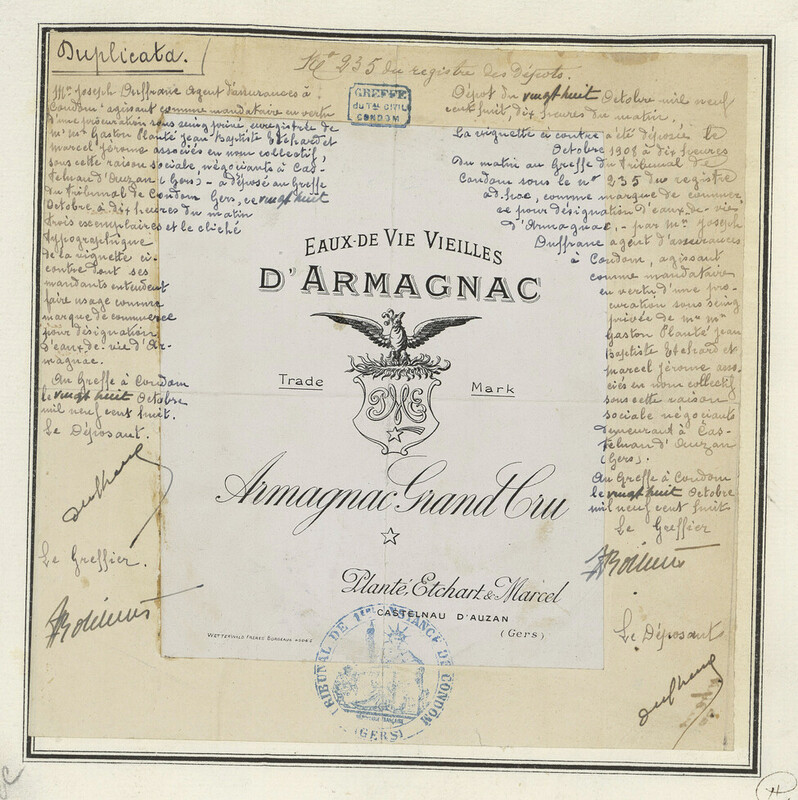 Duplicata.
N° 235 du registre des Dépôts.
Mr Joseph Duffranc Agent d'assurances à
Condom agissant comme mandataire en vertu
d'une procuration sous seing privé, enregistrée de
Mrs Mrs Gaston Planté Jean Baptiste Etchard et
Marcel Jérome associés en nom collectif,
sous cette raison sociale, négociants à Cas-
telnau d'Auzan (Gers) - a déposé au Greffe
du tribunal de Condom Gers, ce vingt huit
Octobre, à dix heures du matin
trois exemplaires et le cliché
typographique
de la vignette ci-
contre dont ses
mandants entendent
faire usage comme
marque de commerce
pour désignation
d'eaux-de-vie d'Ar-
magnac.
Au Greffe à Condom
le vingt huit Octobre
mil neuf cent huit.
Le Déposant.
Le Greffier.
GREFFE
DU TAL CIVIL
CONDOM
Dépôt du vingt huit Octobre mil neuf
cent huit, dix heures du matin,
La vignette ci contre a été déposée le
Octobre 1908 à dix heures
du matin au Greffe du tribunal de
Condom sous le n° 235 du registre
ad-hoc, comme marque de commer-
ce pour désignation d'eaux-de-vie
d'Armagnac, - par Mr Joseph
Duffranc agent d'assurances
à Condom, agissant
comme mandataire
en vertu d'une pro-
curation sous seing
privée de Mrs Mrs
Gaston Planté Jean
Baptiste Etchard et
Marcel Jérome asso-
ciés en nom collectif
sous cette raison
sociale négociants
demeurant à Cas-
telnau d'Auzan
(Gers).
Au Greffe à Condom
le vingt huit Octobre
mil neuf cent huit
Le Greffier
Le Déposant
EAUX-DE VIE VIEILLES
D'ARMAGNAC
Trade Mark
PME
Armagnac Grand Cru
Planté, Etchart & Marcel
CASTELNAU D'AUZAN
(Gers)
WETTERWALD FRÈRES BORDEAUX
TRIBUNAL DE 1ère INSTANCE DE CONDOM
(GERS)